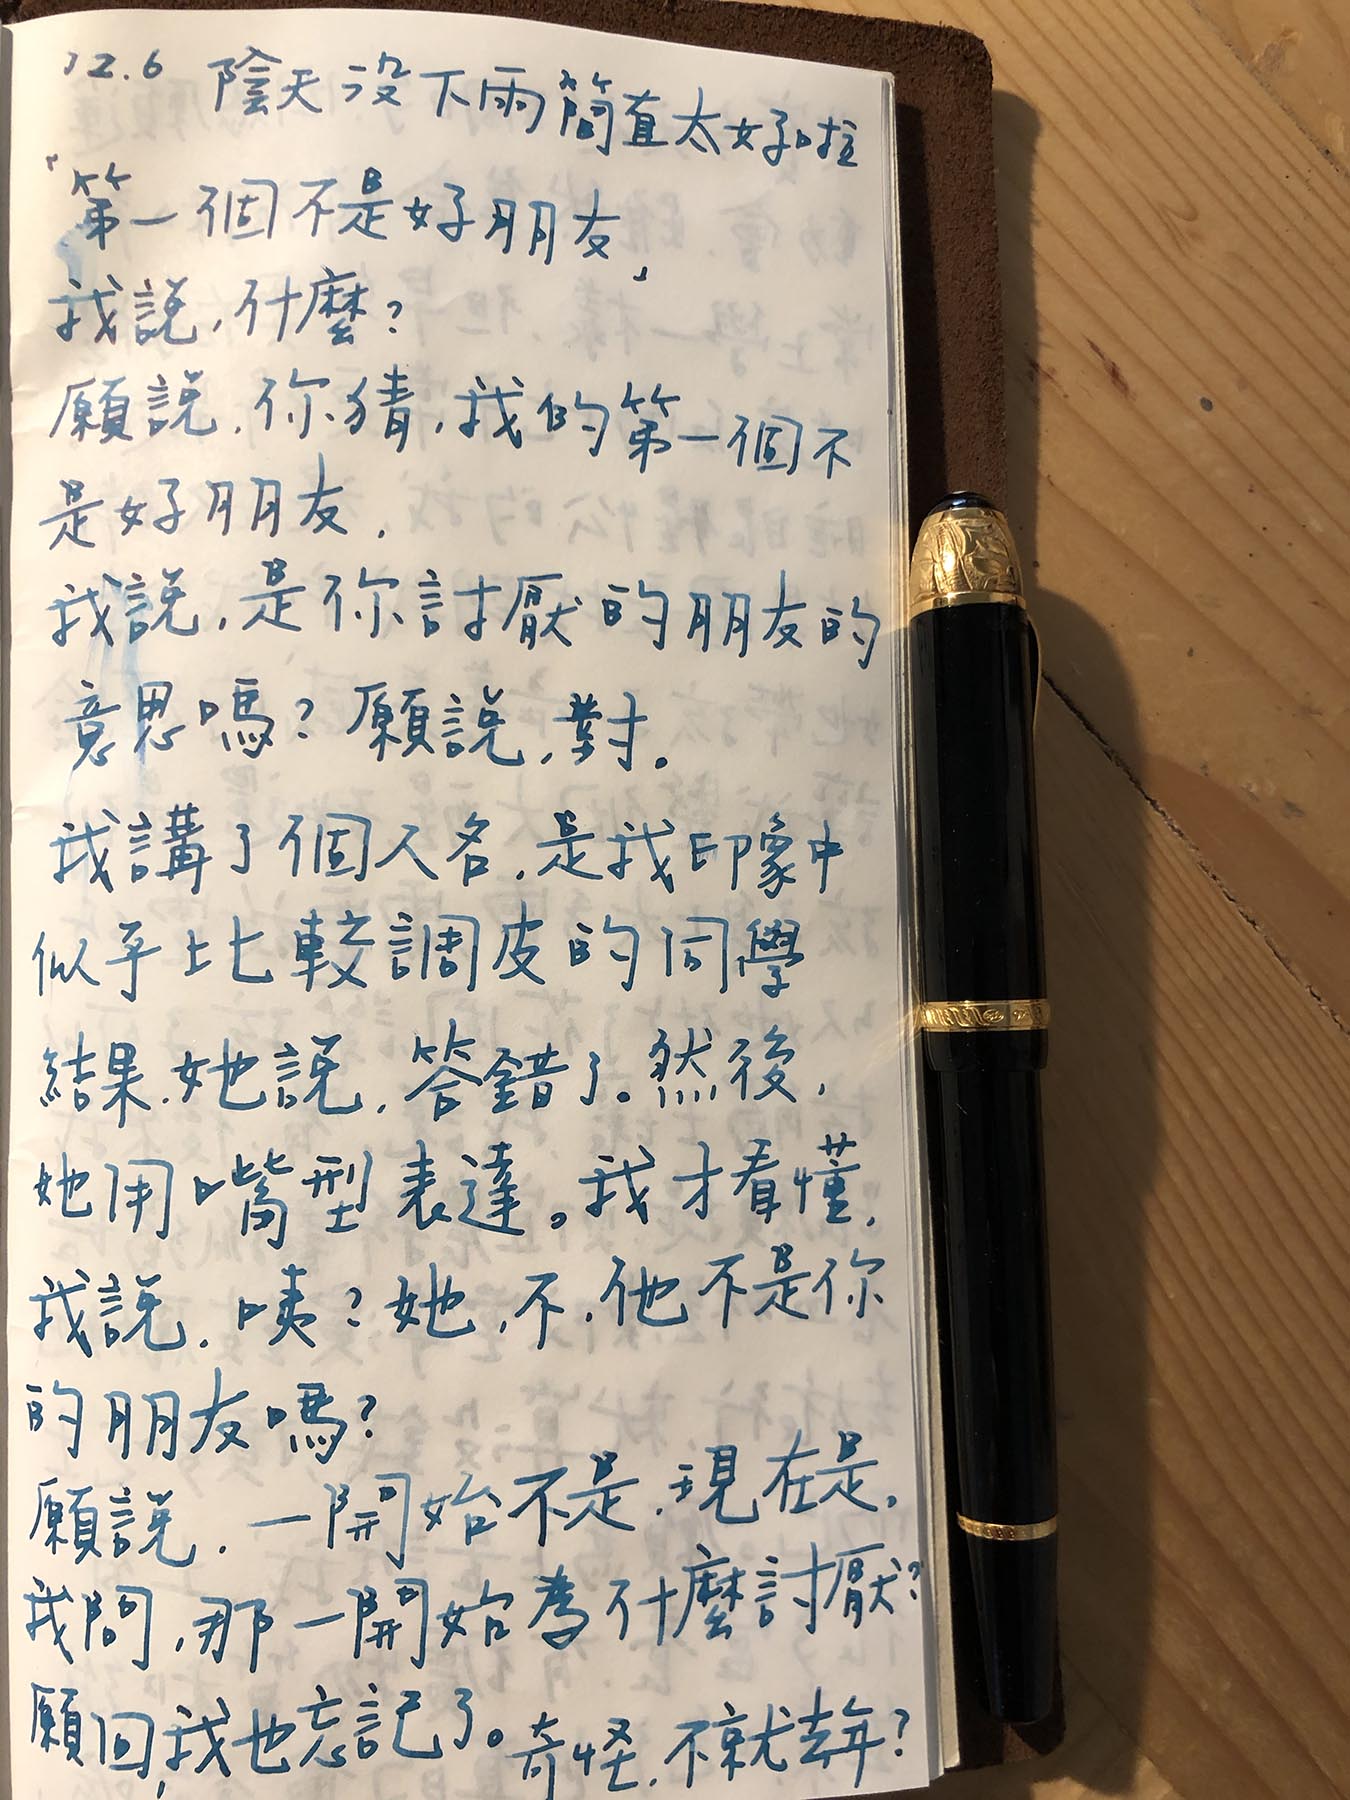 12.6 陰天沒下雨簡直太好啦
「第一個不是好朋友」
我說,什麼?
願說,你猜,我的第一個不
是好朋友,
我說,是你討厭的朋友的
意思嗎?願說,對。
我講了個人名,是我印象中
似乎比較調皮的同學
結果,她說,答錯了。然後,
她用嘴型表達。我才看懂,
我說,咦?她,不,他不是你
的朋友嗎?
願說,一開始不是,現在是,
我問,那一開始為什麼討厭?
願回,我也忘記了。奇怪,不就去年?